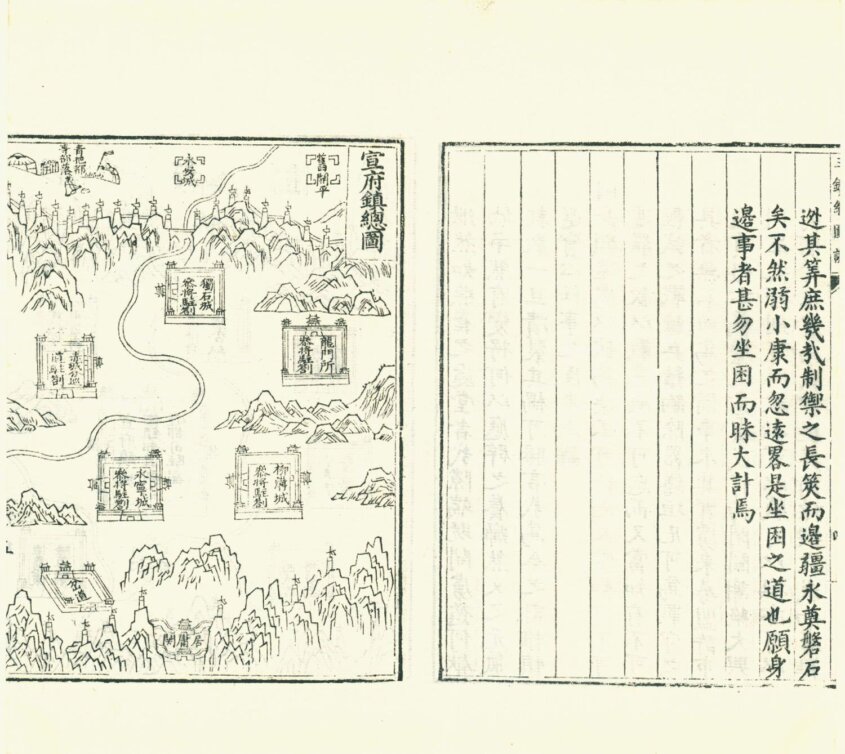 迯其筭庶幾哉制禦之長筴而邊疆永奠磐石
矣不然溺小康而忽遠畧是坐困之道也願身
邊事者甚勿坐困而昧大計焉
宣府鎮總圖
舊開平
青把都
等部落
獨石城
叅將駐劄
龍門所
叅將駐劄
柳溝城
叅將駐劄
永寧城
叅將駐劄
岔道
居庸關